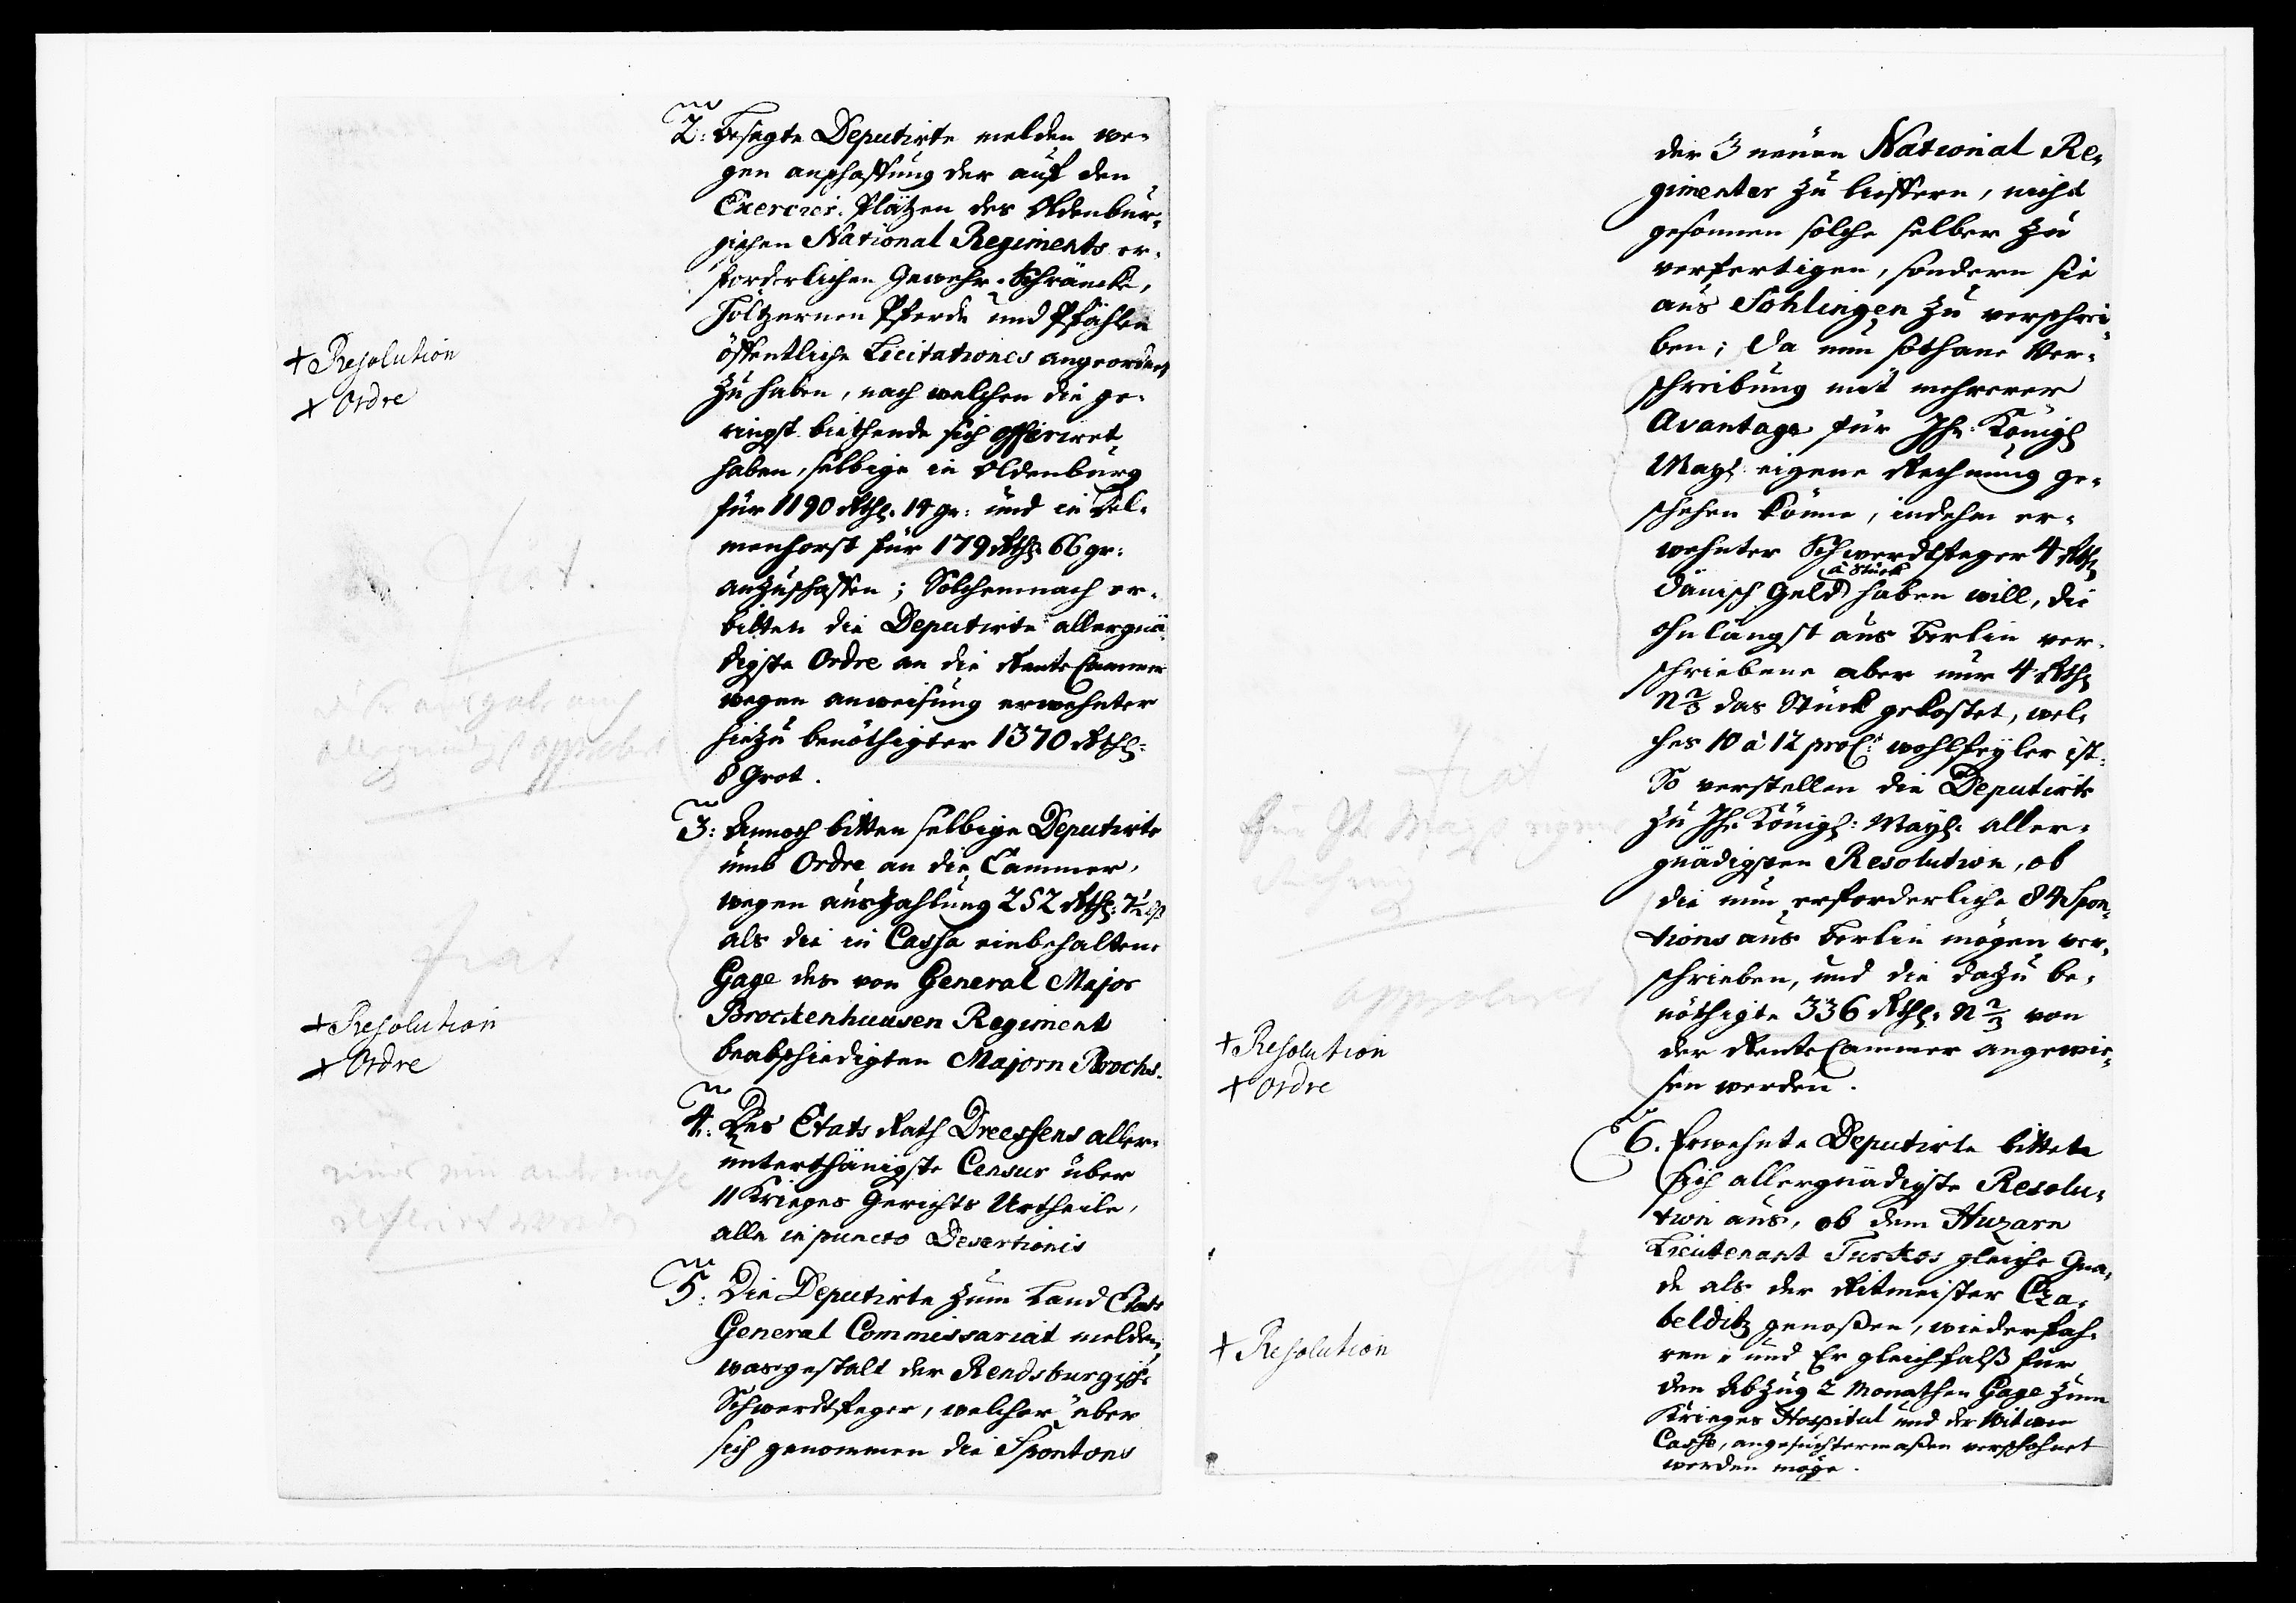 2: Besagte Deputirte melden we-
gen anschaffung der auf den
Exercier-Plätzen des Oldenbur-
gischen National Regiments er-
forderlichen Gewehr-Schräncke,
Höltzernen Pferde und Pfähle
öffentliche Licitationes angeordnet
zu haben, nach welchen die ge-
ringst biethende sich offeriret
haben, selbige in Oldenburg
für 1190 Rthl. 14 gr: und in Del-
menhorst für 179 Rthl. 66 gr:
anzuschaffen; Solchemnach er-
bitten die Deputirte allergnä-
digste Ordre an die Rente Cammer
wegen anweisung erwehnter
hiezu benöthigter 1370 Rthl:
8 Grot.
+ Resolution
+ Ordre
fiat.
ausgabe auch
allergnädigst approbirt
3: Annoch bitten selbige Deputirte
umb Ordre an die Cammer,
wegen auszahlung 252 Rthl: 7½ ß
als die in Cassa einbehaltene
Gage des von General Major
Brockenhuusen Regiment
beabschiedigten Majorn Rochs.
fiat
+ Resolution
+ Ordre
4: Des Etats Rath Dreessens aller-
unterthänigste Censur über
11 Krieges Gerichts Urtheile,
alle in puncto Desertionis
5: Die Deputirte zum Land Etats
General Commissariat melden,
wasgestalt der Rendsburgische
Schwerdtfeger, welcher über
sich genommen die Spontons
der 3 neuen National Re-
gimenter zu liefern, nicht
gesonnen solche selber zu
verfertigen, sondern sie
aus Sohlingen zu verschrei-
ben; Da nun sothane Ver-
schreibung mit mehrerer
Avantage für Ihr. Königl
Mayt. eigene Rechnung ge-
schehen könne, indehm er-
wehnter Schwerdtfeger 4 Rthl
à Stück
Dänisch Geld haben will, die
ohnlängst aus Berlin ver-
schriebene aber nur 4 Rthl
N ⅔ das Stück gekostet, wel-
ches 10 à 12 proC.t wohlfeyler ist.
So verstellen die Deputirte
zu Ihr. Königl: Mayt. aller-
gnädigsten Resolution, ob
die nun erforderliche 84 Spon-
tons aus Berlin mögen ver-
schrieben, und die dazu be-
nöthigte 336 Rthl. N ⅔ von
der Rente Cammer angewie-
sen werden.
fiat
approbiret
+ Resolution
+ Ordre
6. Erwehnte Deputirte bitten
sich allergnädigste Resolu-
tion aus, ob dem Huzaren
Lieutenant Turkos gleiche Gna-
de als der Ritmeister Cza-
belditz genoßen, wiederfah-
ren, und Er gleichfalß für
den Abzug 2 Monathen Gage zum
Krieges Hospital und der Witwen
Cassa, angesuchtermaßen verschohnet
werden möge.
+ Resolution